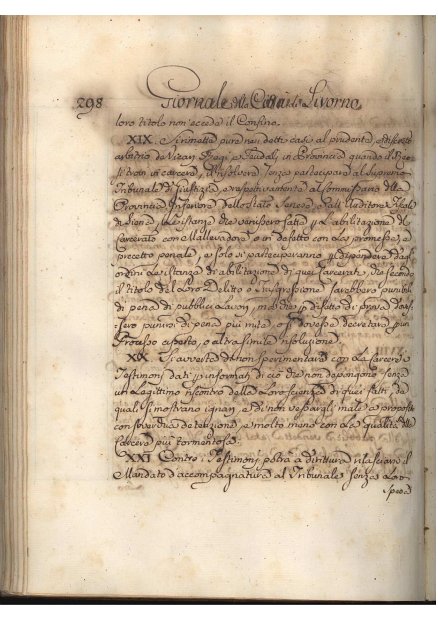 298 Giornale della Città di Livorno
loro titolo non ecceda il Confino.
XIX. Si rimetta pure nei detti casi al prudente, e discreto
arbitrio de Vicarj Regj, e Feudali in Provincia quando il Reo
si trovi in carcere, il risolvere senza partecipare al Supremo
Tribunale di Giustizia, e respettivamente al Commissario della
Provincia Inferiore dello Stato Senese, e all' Auditore Fiscale
di Siena, le Istanze che venissero fatte per l'abilitazione del
Carcerato con Mallevadore, o in difetto con la promessa, e
precetto penale, e solo si parteciperanno per dependere dagli
ordini le Istanze di abilitazione di quei Carcerati, che secondo
il titolo del Loro Delitto o Trasgressione sarebbero punibili
di pena di pubblici Lavori, per difetto di prova dovessero
punirsi di pena più mite, o dovesse decretarsi pur
Processo aperto, o altra simile risoluzione.
XX. Si avverta di non sperimentare con la Carcere i
Testimonj dati per informati di ciò che non depongono senza
un Legittimo riscontro della Loro scienza di quei fatti, de
quali si mostrano ignari, e di non vessargli male a proposito
con soverchia detenzione, e molto meno con la qualità della
Carcere più tormentosa.
XXI. Contro i Testimonj potrà a dirittura rilasciarsi il
Mandato d'accompagnatura al Tribunale senza Loro
spesa